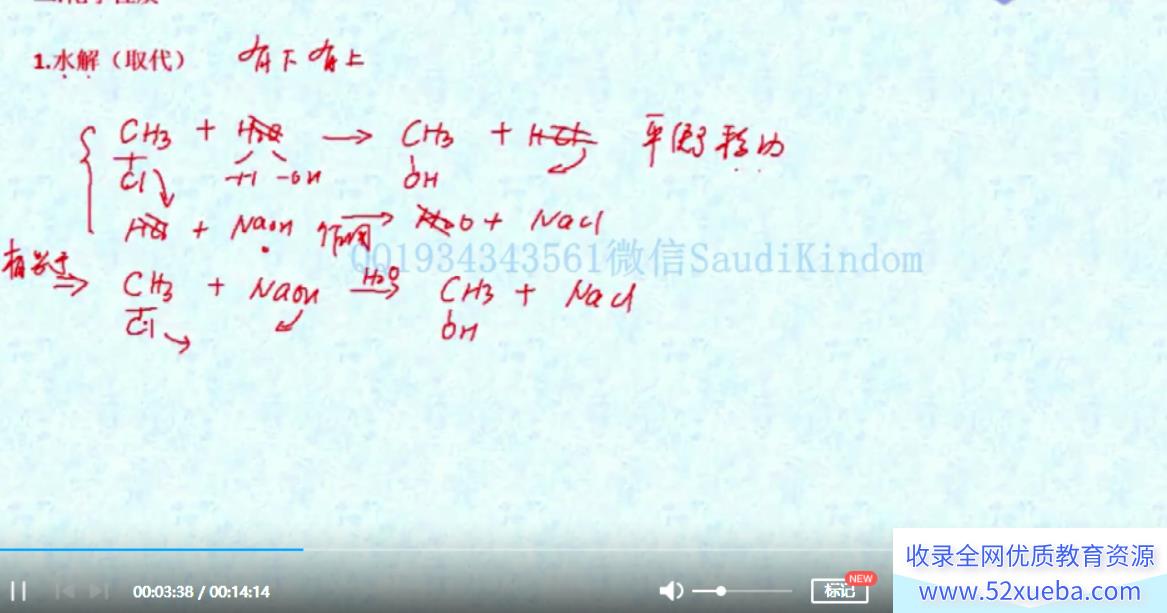 1.水解（取代） 有下有上
CH3 + H2O → CH3 + HCl 平衡移动
Cl -H -OH OH
HCl + NaOH 作用 → H2O + NaCl
QQ1934343561微信SaudiKindom
相当于 ⇒ CH3 + NaOH H2O → CH3 + NaCl
Cl OH
00:03:38 / 00:14:14
标记 NEW
收录全网优质教育资源
www.52xueba.com